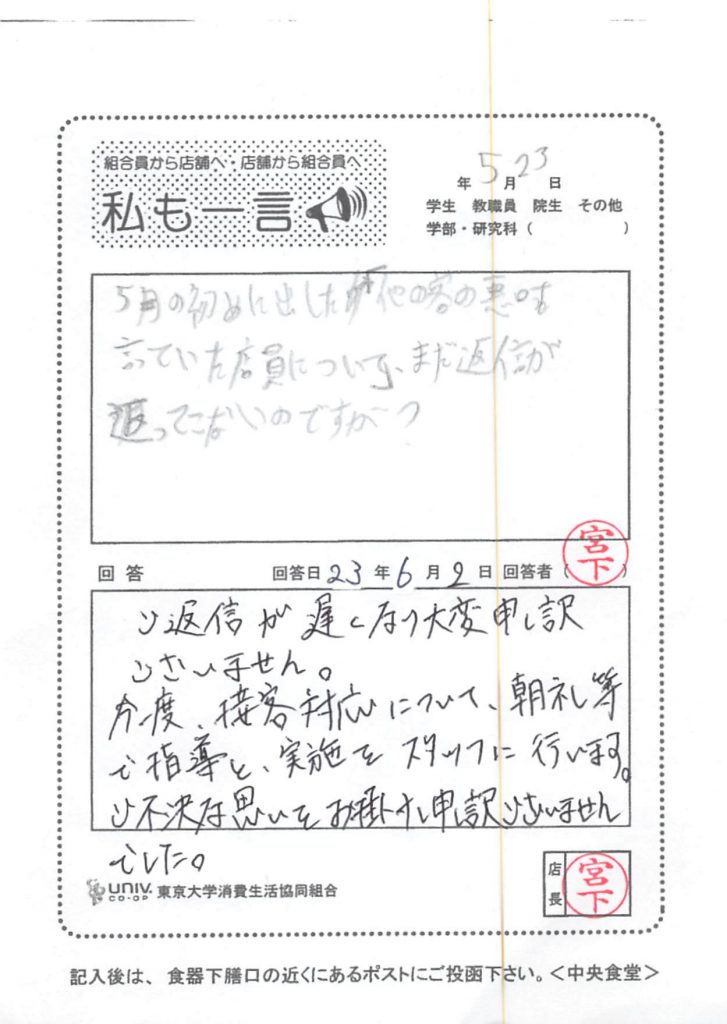 組合員から店舗へ・店舗から組合員へ
私も一言
年 5 月 23 日
学生 教職員 院生 その他
学部・研究科( )
5月の初めに出した他の客の悪口を
言っていた店員について、まだ返信が
返ってこないのですが?
回答 回答日 23 年 6 月 2 日 回答者( 宮下 )
ご返信が遅くなり大変申し訳
ございません。
今一度、接客対応について、朝礼等
で指導と、実施をスタッフに行います。
ご不快な思いをお掛けし申し訳ございません
でした。
UNIV. CO-OP 東京大学消費生活協同組合
店長 宮下
記入後は、食器下膳口の近くにあるポストにご投函下さい。<中央食堂>